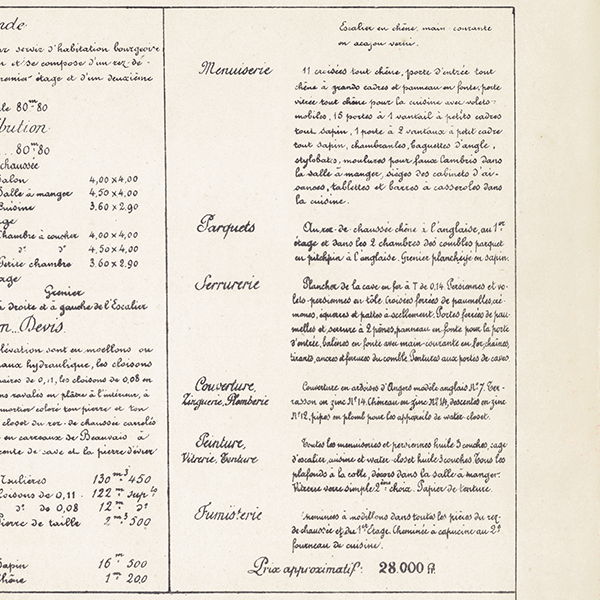 nde
ur servir d'habitation bourgeoise
n et se compose d'un rez-de-
premier étage et d'un deuxième
le 80m80
ibution
80m80
chaussée
Salon 4,00 x 4,00
Salle à manger 4,50 x 4,00
Cuisine 3.60 x 2.90
age
Chambre à coucher 4,00 x 4,00
do do 4,50 x 4,00
Petite chambre 3.60 x 2.90
age
Grenier
à droite et à gauche de l'Escalier
on Devis
élévation sont en moellons ou
aux hydraulique, les cloisons
naires de 0,11, les cloisons de 0,08 en
ns ravalés en plâtre à l'intérieur, à
mortier coloré ton pierre et ton
closet du rez-de-chaussée carrelés
en carreaux de Beauvais à
pente de cave et la pierre d'évier
Meulières 130 m3 450
loisons de 0,11 122 m superle
do de 0,08 12 m do
Pierre de taille 2 m3 500
Sapin 16 m 500
Chêne 1 m 200
Escalier en chêne, main courante
en acajou verni.
Menuiserie 11 croisées tout chêne, porte d'entrée tout
chêne à grands cadres et panneau en fonte, porte
vitrée tout chêne pour la cuisine avec volets
mobiles, 15 portes à 1 vantail à petits cadres
tout sapin, 1 porte à 2 vantaux à petit cadre
tout sapin, chambranles, baguettes d'angle,
stylobats, moulures pour faux lambris dans
la salle à manger, sièges des cabinets d'ai-
sances, tablettes et barres à casseroles dans
la cuisine.
Parquets Au rez-de-chaussée chêne à l'anglaise, au 1er
étage et dans les 2 chambres des combles parquet
en pitchpin à l'anglaise. Grenier planchéié en sapin.
Serrurerie Plancher de la cave en fer à T de 0,14. Persiennes et vo-
lets-persiennes en tôle. Croisées ferrées de paumelles, cré-
mones, équerres et pattes à scellement. Portes ferrées de pau-
melles et serrure à 2 pênes, panneau en fonte pour la porte
d'entrée, balcons en fonte avec main-courante en fer, chaînes,
tirants, ancres et ferrures du comble. Pentures aux portes de caves.
Couverture, Couverture en ardoises d'Angers modèle anglais No 7. Ter-
Zinguerie, Plomberie rasson en zinc No 14. Chéneau en zinc No 14, descentes en zinc
No 12, pipes en plomb pour les appareils de water-closet.
Peinture, Toutes les menuiseries et persiennes huile 3 couches, cage
Vitrerie, Tenture d'escalier, cuisine et water-closet huile 3 couches. Tous les
plafonds à la colle, décors dans la salle à manger.
Vitrerie verre simple 2ème choix. Papier de tenture.
Fumisterie Cheminées à modillons dans toutes les pièces du rez-
de-chaussée et du 1er Étage. Cheminée à capucine au 2e
fourneau de cuisine.
Prix approximatif: 28.000 f.